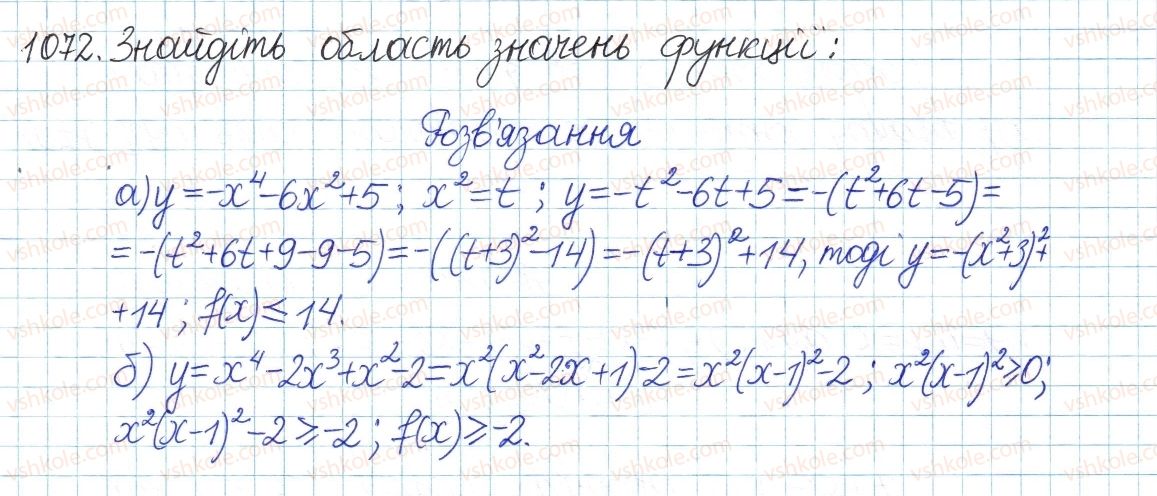 1072. Знайдіть область значень функції:
Розв'язання
а) y = -x⁴ - 6x² + 5; x² = t; y = -t² - 6t + 5 = -(t² + 6t - 5) =
= -(t² + 6t + 9 - 9 - 5) = -((t + 3)² - 14) = -(t + 3)² + 14, тоді y = -(x² + 3)² +
+ 14; f(x) ≤ 14.
б) y = x⁴ - 2x³ + x² - 2 = x²(x² - 2x + 1) - 2 = x²(x - 1)² - 2; x²(x - 1)² ≥ 0;
x²(x - 1)² - 2 ≥ -2; f(x) ≥ -2.